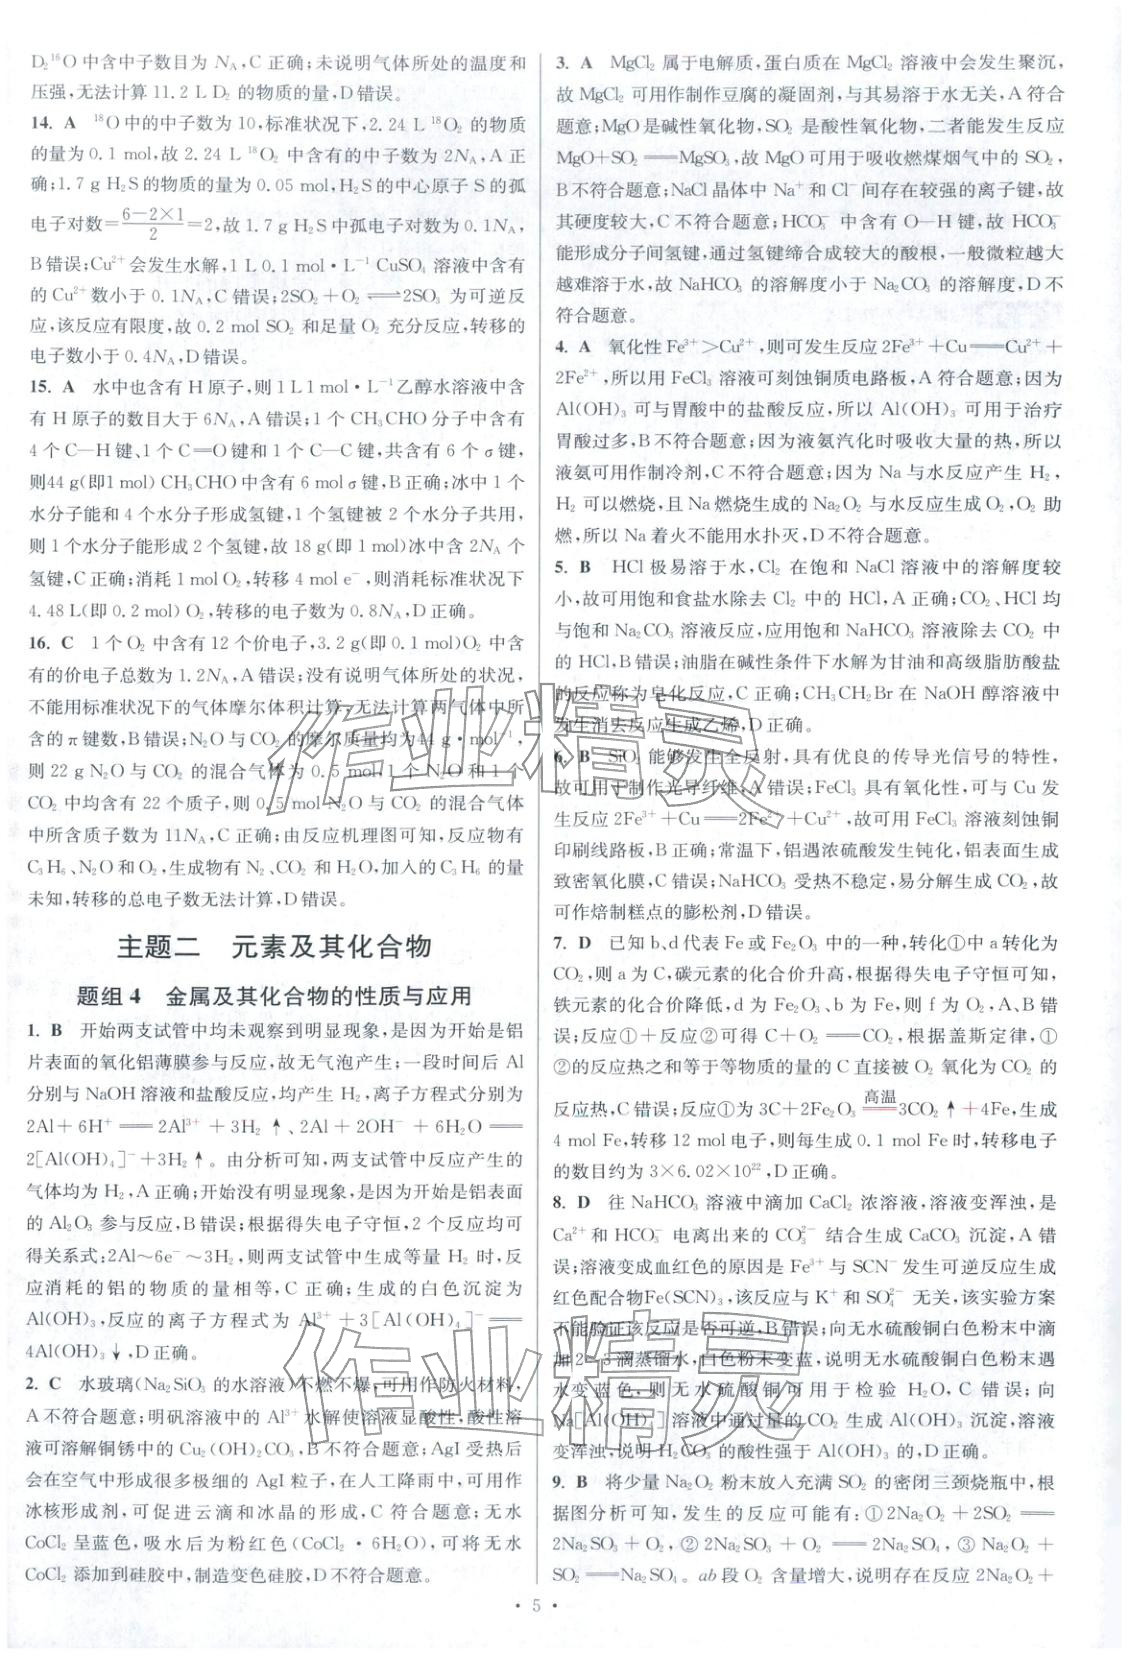 D₂¹⁶O 中含中子数目为 Nₐ,C 正确;未说明气体所处的温度和
压强,无法计算 11.2 L D₂ 的物质的量,D 错误。
14. A ¹⁸O 中的中子数为 10,标准状况下,2.24 L ¹⁸O₂ 的物质
的量为 0.1 mol,故 2.24 L ¹⁸O₂ 中含有的中子数为 2Nₐ,A 正
确;1.7 g H₂S 的物质的量为 0.05 mol,H₂S 的中心原子 S 的孤
电子对数=(6-2×1)/2=2,故 1.7 g H₂S 中孤电子对数为 0.1Nₐ,
B 错误;Cu²⁺ 会发生水解,1 L 0.1 mol·L⁻¹ CuSO₄ 溶液中含有
的 Cu²⁺ 数小于 0.1Nₐ,C 错误;2SO₂+O₂⇌2SO₃ 为可逆反
应,该反应有限度,故 0.2 mol SO₂ 和足量 O₂ 充分反应,转移的
电子数小于 0.4Nₐ,D 错误。
15. A 水中也含有 H 原子,则 1 L 1 mol·L⁻¹乙醇水溶液中含
有 H 原子的数目大于 6Nₐ,A 错误;1 个 CH₃CHO 分子中含有
4 个 C—H 键、1 个 C═O 键和 1 个 C—C 键,共含有 6 个 σ 键,
则44 g(即1 mol) CH₃CHO 中含有 6 mol σ 键,B 正确;冰中 1 个
水分子能和 4 个水分子形成氢键,1 个氢键被 2 个水分子共用,
则 1 个水分子能形成 2 个氢键,故 18 g(即 1 mol)冰中含 2Nₐ 个
氢键,C 正确;消耗 1 mol O₂,转移 4 mol e⁻,则消耗标准状况下
4.48 L(即 0.2 mol) O₂,转移的电子数为 0.8Nₐ,D 正确。
16. C 1 个 O₂ 中含有 12 个价电子,3.2 g(即 0.1 mol)O₂ 中含
有的价电子总数为 1.2Nₐ,A 错误;没有说明气体所处的状况,
不能用标准状况下的气体摩尔体积计算,无法计算两气体中所
含的 π 键数,B 错误;N₂O 与 CO₂ 的摩尔质量均为44 g·mol⁻¹,
则 22 g N₂O 与 CO₂ 的混合气体为 0.5 mol,1 个 N₂O 和 1 个
CO₂ 中均含有 22 个质子,则 0.5 mol N₂O 与 CO₂ 的混合气体
中所含质子数为 11Nₐ,C 正确;由反应机理图可知,反应物有
C₃H₆、N₂O 和 O₂,生成物有 N₂、CO₂ 和 H₂O,加入的 C₃H₆ 的量
未知,转移的总电子数无法计算,D 错误。
主题二 元素及其化合物
题组 4 金属及其化合物的性质与应用
1. B 开始两支试管中均未观察到明显现象,是因为开始是铝
片表面的氧化铝薄膜参与反应,故无气泡产生;一段时间后 Al
分别与 NaOH 溶液和盐酸反应,均产生 H₂,离子方程式分别为
2Al+6H⁺══2Al³⁺+3H₂↑、2Al+2OH⁻+6H₂O══
2[Al(OH)₄]⁻+3H₂↑。由分析可知,两支试管中反应产生的
气体均为 H₂,A 正确;没有明显现象,是因为开始是铝表面
的 Al₂O₃ 参与反应,B 错误;根据得失电子守恒,2 个反应均可
得关系式:2Al~6e⁻~3H₂,则两支试管中生成等量 H₂ 时,反
应消耗的铝的物质的量相等,C 正确;生成的白色沉淀为
Al(OH)₃,反应的离子方程式为 Al³⁺+3[Al(OH)₄]⁻══
4Al(OH)₃↓,D 正确。
2. C 水玻璃(Na₂SiO₃ 的水溶液)不燃不爆,可用作防火材料,
A 不符合题意;明矾溶液中的 Al³⁺ 水解使溶液显酸性,酸性溶
液可溶解铜锈中的 Cu₂(OH)₂CO₃,B 不符合题意;AgI 受热后
会在空气中形成很多极细的 AgI 粒子,在人工降雨中,可用作
冰核形成剂,可促进云滴和冰晶的形成,C 符合题意;无水
CoCl₂ 呈蓝色,吸水后为粉红色(CoCl₂·6H₂O),可将无水
CoCl₂ 添加到硅胶中,制造变色硅胶,D 不符合题意。
3. A MgCl₂ 属于电解质,蛋白质在 MgCl₂ 溶液中会发生聚沉,
故 MgCl₂ 可用作制作豆腐的凝固剂,与其易溶于水无关,A 符合
题意;MgO 是碱性氧化物,SO₂ 是酸性氧化物,二者能发生反应
MgO+SO₂══MgSO₃,故 MgO 可用于吸收燃煤烟气中的 SO₂,
B 不符合题意;NaCl 晶体中 Na⁺ 和 Cl⁻ 间存在较强的离子键,故
其硬度较大,C 不符合题意;HCO₃⁻ 中含有 O—H 键,故 HCO₃⁻
能形成分子间氢键,通过氢键缔合成较大的酸根,一般微粒越大
越难溶于水,故 NaHCO₃ 的溶解度小于 Na₂CO₃ 的溶解度,D 不
符合题意。
4. A 氧化性 Fe³⁺>Cu²⁺,则可发生反应 2Fe³⁺+Cu══Cu²⁺+
2Fe²⁺,所以用 FeCl₃ 溶液可刻蚀铜质电路板,A 符合题意;因为
Al(OH)₃ 可与胃酸中的盐酸反应,所以 Al(OH)₃ 可用于治疗
胃酸过多,B 不符合题意;因为液氨汽化时吸收大量的热,所以
液氨可用作制冷剂,C 不符合题意;因为 Na 与水反应产生 H₂,
H₂ 可以燃烧,且 Na 燃烧生成的 Na₂O₂ 与水反应生成 O₂,O₂ 助
燃,所以 Na 着火不能用水扑灭,D 不符合题意。
5. B HCl 极易溶于水,Cl₂ 在饱和 NaCl 溶液中的溶解度较
小,故可用饱和食盐水除去 Cl₂ 中的 HCl,A 正确;CO₂、HCl 均
与饱和 Na₂CO₃ 溶液反应,应用饱和 NaHCO₃ 溶液除去 CO₂ 中
的 HCl,B 错误;油脂在碱性条件下水解为甘油和高级脂肪酸盐
的反应称为皂化反应,C 正确;CH₃CH₂Br 在 NaOH 醇溶液中
发生消去反应生成乙烯,D 正确。
6. B SiO₂ 能够发生全反射,具有优良的传导光信号的特性,
故可用于制作光导纤维,A 错误;FeCl₃ 具有氧化性,可与 Cu 发
生反应 2Fe³⁺+Cu══2Fe²⁺+Cu²⁺,故可用 FeCl₃ 溶液刻蚀铜
印刷线路板,B 正确;常温下,铝遇浓硫酸发生钝化,铝表面生成
致密氧化膜,C 错误;NaHCO₃ 受热不稳定,易分解生成 CO₂,故
可作焙制糕点的膨松剂,D 错误。
7. D 已知 b、d 代表 Fe 或 Fe₂O₃ 中的一种,转化①中 a 转化为
CO₂,则 a 为 C,碳元素的化合价升高,根据得失电子守恒可知,
铁元素的化合价降低,d 为 Fe₂O₃,b 为 Fe,则 f 为 O₂,A、B 错
误;反应①+反应②可得 C+O₂══CO₂,根据盖斯定律,①
②的反应热之和等于等物质的量的 C 直接被 O₂ 氧化为 CO₂ 的
反应热,C 错误;反应①为 3C+2Fe₂O₃ 高温══ 3CO₂↑+4Fe,生成
4 mol Fe,转移 12 mol 电子,则每生成 0.1 mol Fe 时,转移电子
的数目约为 3×6.02×10²²,D 正确。
8. D 往 NaHCO₃ 溶液中滴加 CaCl₂ 浓溶液,溶液变浑浊,是
Ca²⁺ 和 HCO₃⁻ 电离出来的 CO₃²⁻ 结合生成 CaCO₃ 沉淀,A 错
误;溶液变成血红色的原因是 Fe³⁺ 与 SCN⁻ 发生可逆反应生成
红色配合物Fe(SCN)₃,该反应与 K⁺ 和 SO₄²⁻ 无关,该实验方案
不能验证该反应是否可逆,B 错误;向无水硫酸铜白色粉末中滴
加 2~3 滴蒸馏水,白色粉末变蓝,说明无水硫酸铜白色粉末遇
水变蓝色,则无水硫酸铜可用于检验 H₂O,C 错误;向
Na[Al(OH)₄]溶液中通过量的 CO₂ 生成 Al(OH)₃ 沉淀,溶液
变浑浊,说明 H₂CO₃ 的酸性强于 Al(OH)₃ 的,D 正确。
9. B 将少量 Na₂O₂ 粉末放入充满 SO₂ 的密闭三颈烧瓶中,根
据图分析可知,发生的反应可能有:①2Na₂O₂+2SO₂══
2Na₂SO₃+O₂,②2Na₂SO₃+O₂══2Na₂SO₄,③Na₂O₂+
SO₂══Na₂SO₄。ab 段 O₂ 含量增大,说明存在反应 2Na₂O₂+
· 5 ·
作业精灵
作业精灵